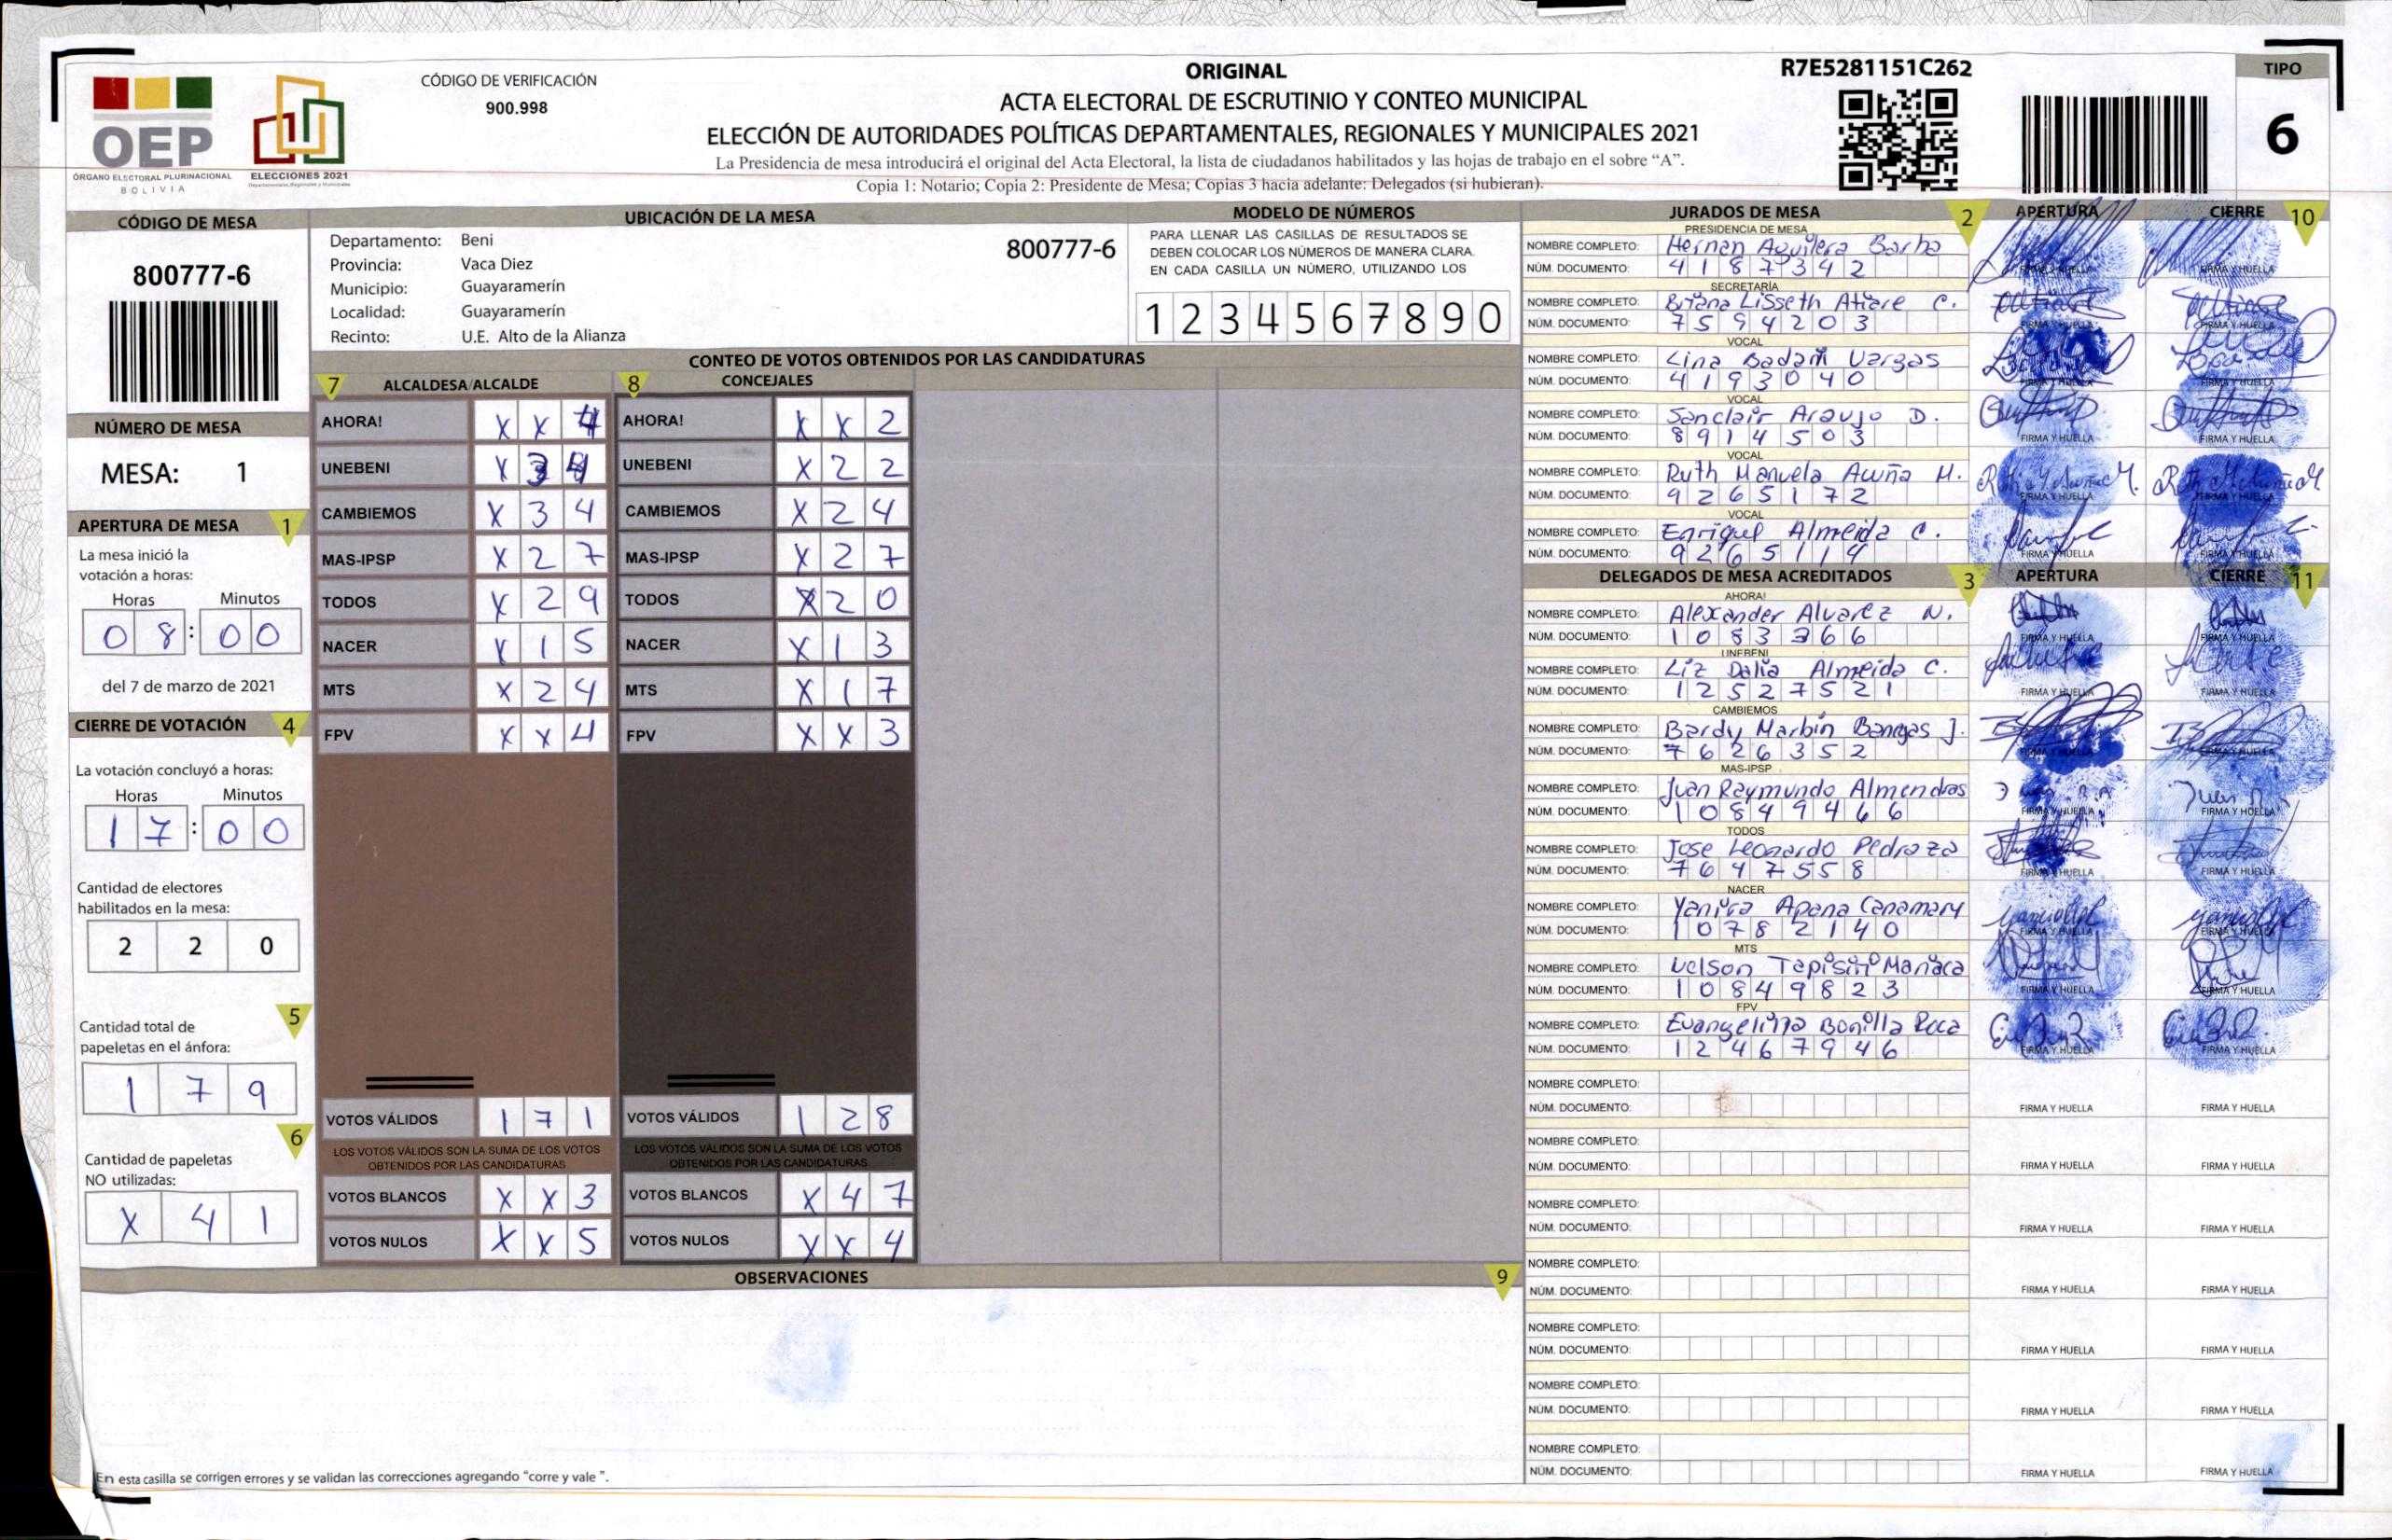 ORIGINAL
R7E5281151C262
TIPO
6
CÓDIGO DE VERIFICACIÓN
900.998
ACTA ELECTORAL DE ESCRUTINIO Y CONTEO MUNICIPAL
ELECCIÓN DE AUTORIDADES POLÍTICAS DEPARTAMENTALES, REGIONALES Y MUNICIPALES 2021
La Presidencia de mesa introducirá el original del Acta Electoral, la lista de ciudadanos habilitados y las hojas de trabajo en el sobre “A”.
Copia 1: Notario; Copia 2: Presidente de Mesa; Copias 3 hacia adelante: Delegados (si hubieran).
OEP
ÓRGANO ELECTORAL PLURINACIONAL
BOLIVIA
ELECCIONES 2021
Departamentales, Regionales y Municipales
CÓDIGO DE MESA
800777-6
NÚMERO DE MESA
MESA: 1
APERTURA DE MESA 1
La mesa inició la
votación a horas:
Horas Minutos
0 8 : 0 0
del 7 de marzo de 2021
CIERRE DE VOTACIÓN 4
La votación concluyó a horas:
Horas Minutos
1 7 : 0 0
Cantidad de electores
habilitados en la mesa:
2 2 0
5
Cantidad total de
papeletas en el ánfora:
1 7 9
6
Cantidad de papeletas
NO utilizadas:
X 4 1
UBICACIÓN DE LA MESA
Departamento: Beni
800777-6
Provincia: Vaca Diez
Municipio: Guayaramerín
Localidad: Guayaramerín
Recinto: U.E. Alto de la Alianza
MODELO DE NÚMEROS
PARA LLENAR LAS CASILLAS DE RESULTADOS SE
DEBEN COLOCAR LOS NÚMEROS DE MANERA CLARA.
EN CADA CASILLA UN NÚMERO, UTILIZANDO LOS
1 2 3 4 5 6 7 8 9 0
CONTEO DE VOTOS OBTENIDOS POR LAS CANDIDATURAS
7 ALCALDESA/ALCALDE 8 CONCEJALES
AHORA! X X 4 AHORA! X X 2
UNEBENI X 3 4 UNEBENI X 2 2
CAMBIEMOS X 3 4 CAMBIEMOS X 2 4
MAS-IPSP X 2 7 MAS-IPSP X 2 7
TODOS X 2 9 TODOS X 2 0
NACER X 1 5 NACER X 1 3
MTS X 2 4 MTS X 1 7
FPV X X 4 FPV X X 3
VOTOS VÁLIDOS 1 7 1 VOTOS VÁLIDOS 1 2 8
LOS VOTOS VÁLIDOS SON LA SUMA DE LOS VOTOS LOS VOTOS VÁLIDOS SON LA SUMA DE LOS VOTOS
OBTENIDOS POR LAS CANDIDATURAS OBTENIDOS POR LAS CANDIDATURAS
VOTOS BLANCOS X X 3 VOTOS BLANCOS X 4 7
VOTOS NULOS X X 5 VOTOS NULOS X X 4
OBSERVACIONES 9
En esta casilla se corrigen errores y se validan las correcciones agregando “corre y vale ”.
JURADOS DE MESA 2 APERTURA CIERRE 10
PRESIDENCIA DE MESA
NOMBRE COMPLETO: Hernan Aguilera Barba
NÚM. DOCUMENTO: 4 1 8 7 3 4 2 FIRMA Y HUELLA FIRMA Y HUELLA
SECRETARÍA
NOMBRE COMPLETO: Briana Lisseth Atiare C.
NÚM. DOCUMENTO: 7 5 9 4 2 0 3 FIRMA Y HUELLA FIRMA Y HUELLA
VOCAL
NOMBRE COMPLETO: Lina Badani Vargas
NÚM. DOCUMENTO: 4 1 9 3 0 4 0 FIRMA Y HUELLA FIRMA Y HUELLA
VOCAL
NOMBRE COMPLETO: Sanclair Araujo D.
NÚM. DOCUMENTO: 8 9 1 4 5 0 3 FIRMA Y HUELLA FIRMA Y HUELLA
VOCAL
NOMBRE COMPLETO: Ruth Manuela Acuña M.
NÚM. DOCUMENTO: 9 2 6 5 1 7 2 FIRMA Y HUELLA FIRMA Y HUELLA
VOCAL
NOMBRE COMPLETO: Enrique Almeida C.
NÚM. DOCUMENTO: 9 2 6 5 1 1 4 FIRMA Y HUELLA FIRMA Y HUELLA
DELEGADOS DE MESA ACREDITADOS 3 APERTURA CIERRE 11
AHORA!
NOMBRE COMPLETO: Alexander Alvarez N.
NÚM. DOCUMENTO: 1 0 8 3 3 6 6 FIRMA Y HUELLA FIRMA Y HUELLA
UNEBENI
NOMBRE COMPLETO: Liz Dalia Almeida C.
NÚM. DOCUMENTO: 1 2 5 2 7 5 2 1 FIRMA Y HUELLA FIRMA Y HUELLA
CAMBIEMOS
NOMBRE COMPLETO: Bardy Marbin Banegas J.
NÚM. DOCUMENTO: 7 6 2 6 3 5 2
MAS-IPSP
NOMBRE COMPLETO: Juan Raymundo Almendras
NÚM. DOCUMENTO: 1 0 8 4 9 4 6 6 FIRMA Y HUELLA FIRMA Y HUELLA
TODOS
NOMBRE COMPLETO: Jose Leonardo Pedraza
NÚM. DOCUMENTO: 7 6 4 7 5 5 8 FIRMA Y HUELLA FIRMA Y HUELLA
NACER
NOMBRE COMPLETO: Yanira Apana Canamary
NÚM. DOCUMENTO: 1 0 7 8 2 1 4 0 FIRMA Y HUELLA FIRMA Y HUELLA
MTS
NOMBRE COMPLETO: Velson Manaca
NÚM. DOCUMENTO: 1 0 8 4 9 8 2 3 FIRMA Y HUELLA FIRMA Y HUELLA
FPV
NOMBRE COMPLETO: Evangelina Bonilla Roca
NÚM. DOCUMENTO: 1 2 4 6 7 9 4 6 FIRMA Y HUELLA FIRMA Y HUELLA
NOMBRE COMPLETO:
NÚM. DOCUMENTO: FIRMA Y HUELLA FIRMA Y HUELLA
NOMBRE COMPLETO:
NÚM. DOCUMENTO: FIRMA Y HUELLA FIRMA Y HUELLA
NOMBRE COMPLETO:
NÚM. DOCUMENTO: FIRMA Y HUELLA FIRMA Y HUELLA
NOMBRE COMPLETO:
NÚM. DOCUMENTO: FIRMA Y HUELLA FIRMA Y HUELLA
NOMBRE COMPLETO:
NÚM. DOCUMENTO: FIRMA Y HUELLA FIRMA Y HUELLA
NOMBRE COMPLETO:
NÚM. DOCUMENTO: FIRMA Y HUELLA FIRMA Y HUELLA
NOMBRE COMPLETO:
NÚM. DOCUMENTO: FIRMA Y HUELLA FIRMA Y HUELLA